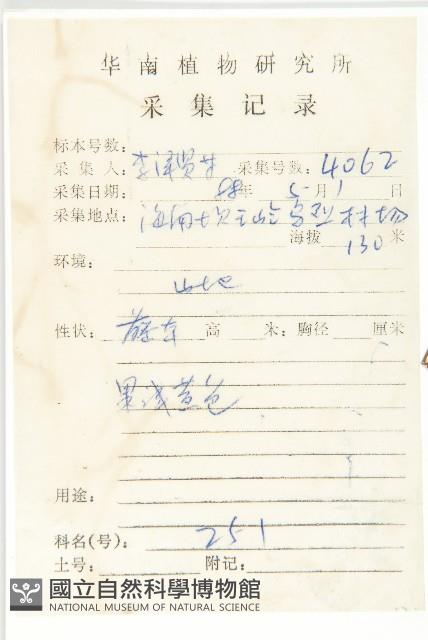 华南植物研究所
采集记录
标本号数:
采集人: 李泽贤 采集号数: 4062
采集日期: 88年 5月1日
采集地点: 海南坝王岭 林场
海拔 130米
环境:
山地
性状: 藤本 高 米; 胸径 厘米
果浅黄色
用途:
科名(号): 251
土号: 附记:
國立自然科學博物館
NATIONAL MUSEUM OF NATURAL SCIENCE